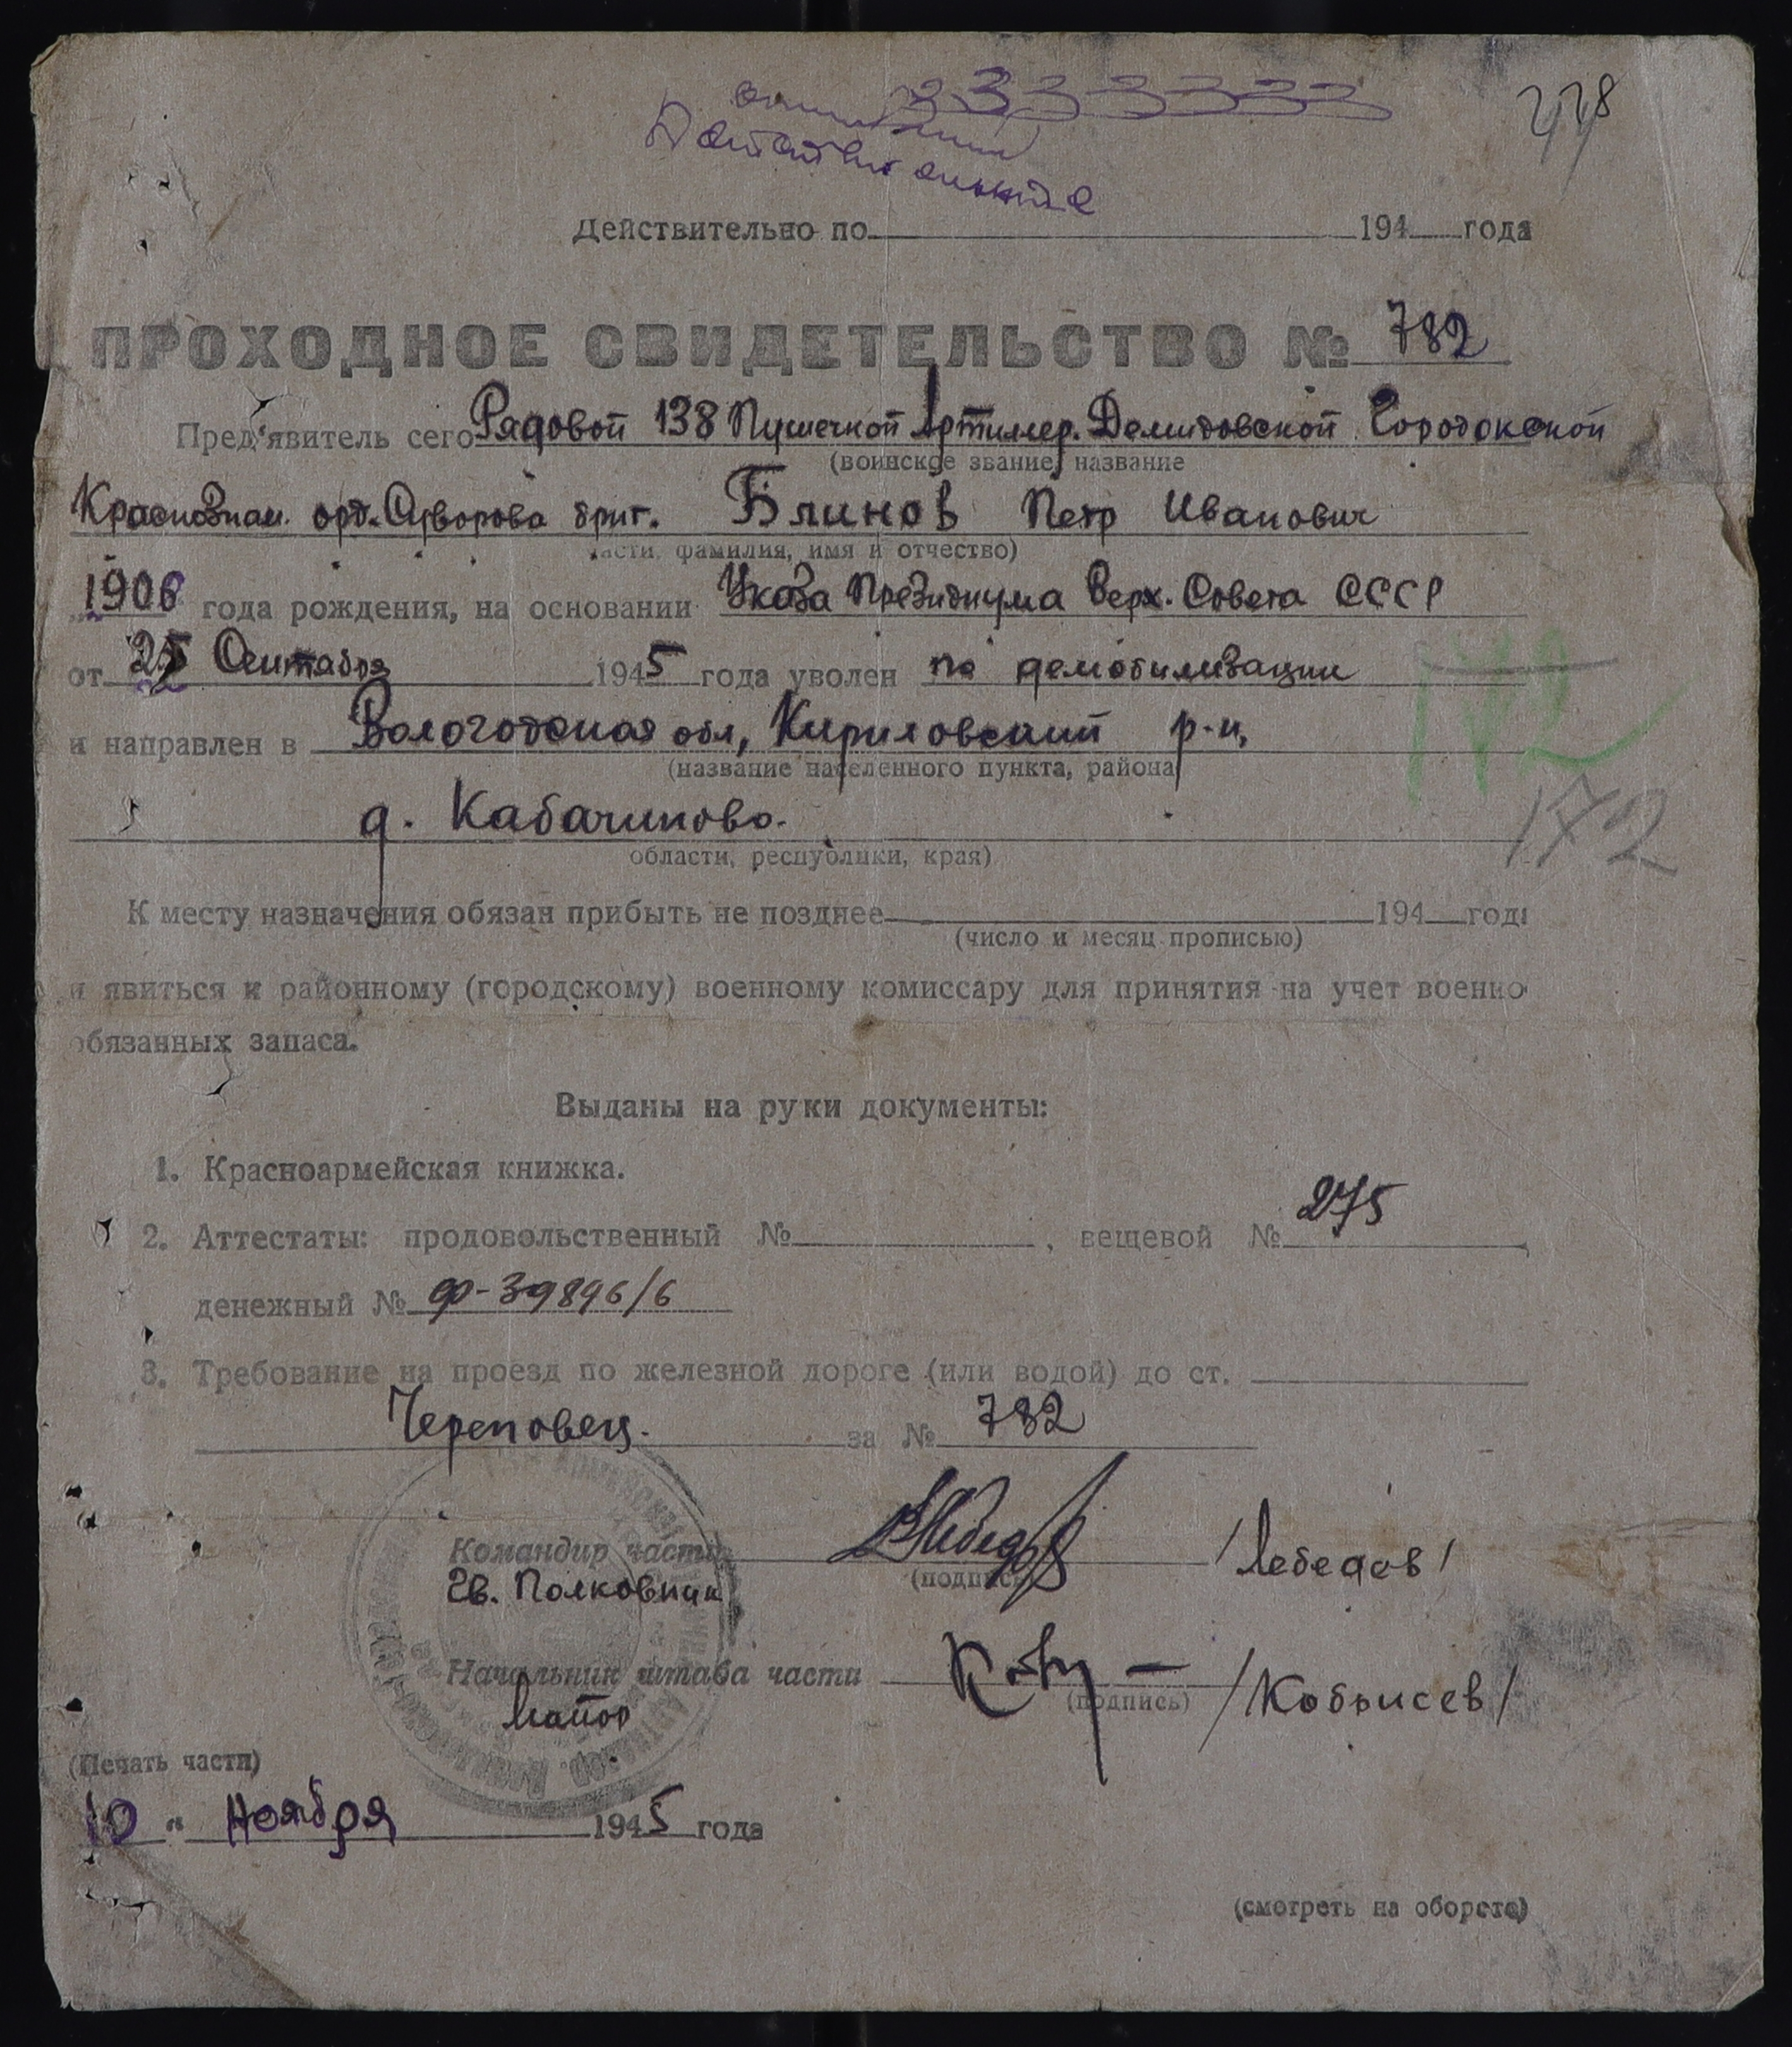 Действительно по 194 года
ПРОХОДНОЕ СВИДЕТЕЛЬСТВО № 782
Пред'явитель сего Рядовой 138 Пушечной Артилер. Демидовской Городокской
(воинское звание, название
Краснознам. орд. Суворова бриг. Блинов Петр Иванович
части, фамилия, имя и отчество)
1906 года рождения, на основании Указа Президиума Верх. Совета СССР
от 25 Сентября 1945 года уволен по демобилизации
172
и направлен в Вологодская обл, Кириловский р-н,
(название населенного пункта, района
172
д. Кабачиново.
области, республики, края)
К месту назначения обязан прибыть не позднее 194 года
(число и месяц прописью)
и явиться к районному (городскому) военному комиссару для принятия на учет военно
обязанных запаса.
Выданы на руки документы:
1. Красноармейская книжка.
2. Аттестаты: продовольственный № , вещевой № 275
денежный № ф-39896/6
3. Требование на проезд по железной дороге (или водой) до ст.
Череповец. за № 782
Командир части /Лебедев/
(подпись)
Гв. Полковник
Начальник штаба части /Кобысев/
(подпись)
Майор
(Печать части)
10 " Ноября 1945 года
(смотреть на обороте)